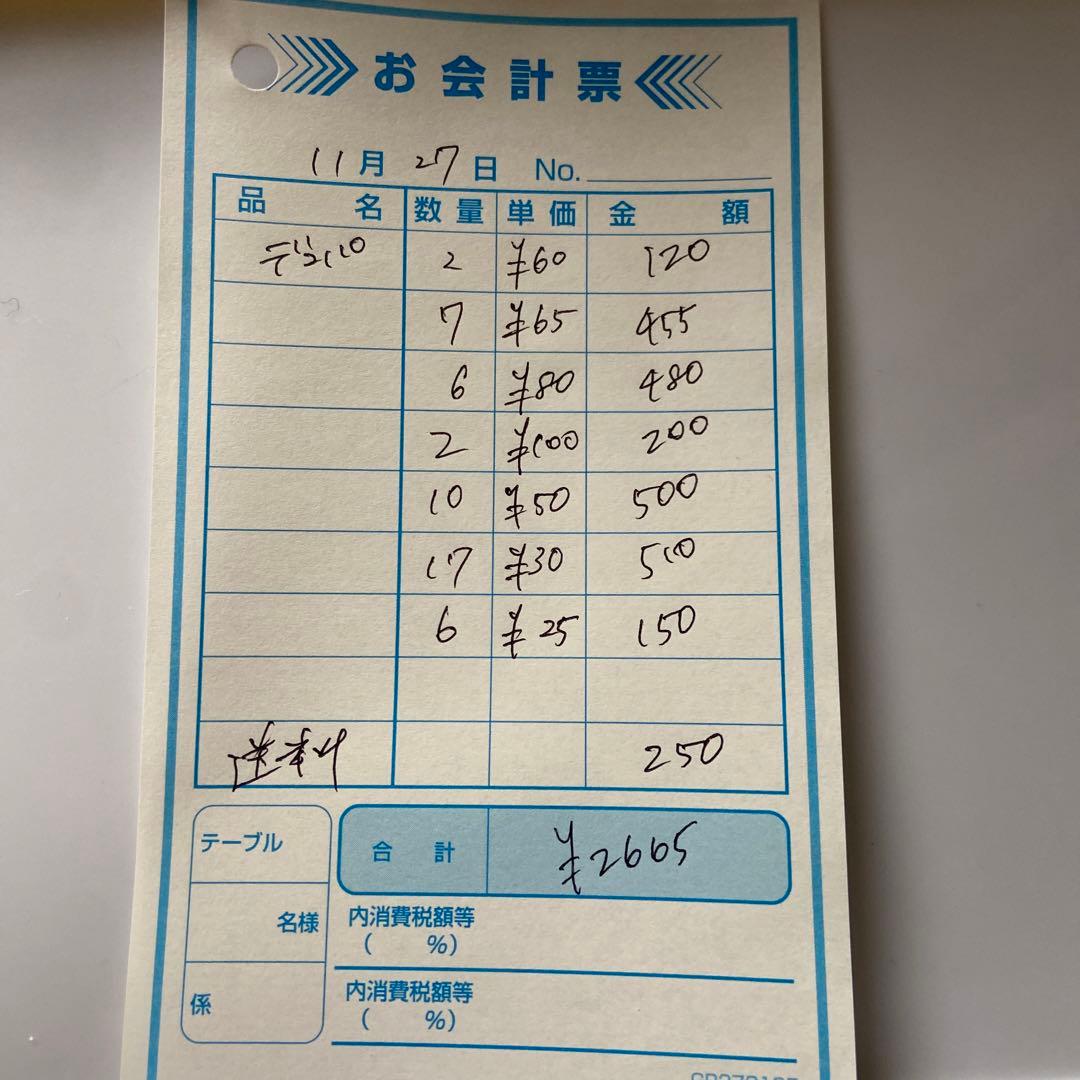 お会計票
11月 27日 No.
品名 数量 単価 金額
デコパ 2 ¥60 120
7 ¥65 455
6 ¥80 480
2 ¥100 200
10 ¥50 500
17 ¥30 510
6 ¥25 150
送料 250
テーブル
合計 ¥2665
名様
内消費税額等
( %)
係
内消費税額等
( %)